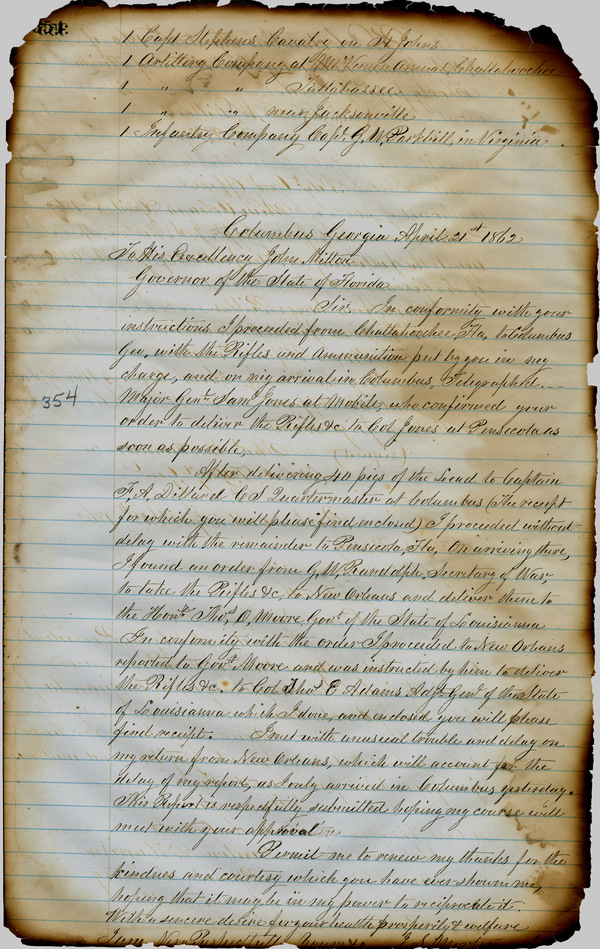 354
1 Capt Stephens Cavalry on St Johns
1 Artillery Company at Arsenal, Chattahoochee
1 " " Tallahassee
1 " " near Jacksonville
1 Infantry Company Capt. G. W. Parkhill, in Virginia.
Columbus Georgia April 21st 1862
To His Excellency John Milton
Governor of the State of Florida
Sir, In conformity with your
instructions I proceeded from Chattahoochee, Fla, to Columbus
Geo, with the Rifles and Ammunition put by you in my
charge, and on my arrival in Columbus, Telegraphed
354
Major Genl. Saml Jones at Mobile, who confirmed your
order to deliver the Rifles &c to Col Jones at Pensicola as
soon as possible,
After delivering 40 pigs of the Lead to Captain
F, A, Dillard C S Quartermaster at Columbus (The receipt
for which you will please find enclosed) I proceeded without
delay with the remainder to Pensicola, Fla, On arriving there,
I found an order from G, W, Randolph, Secretary of War
to take the Rifles &c, to New Orleans and deliver them to
the Honl. Thos, O, Moore Govr. of the State of Louisianna
In conformity with the order I proceeded to New Orleans
reported to Govr. Moore and was instructed by him to deliver
the Rifles &c. to Col Thos E Adams Adjt. Genl of the State
of Louisianna which I done, and enclosed you will please
find receipt. I met with unusual trouble and delay on
my return from New Orleans, which will account for the
delay of my report, as I only arrived in Columbus yesterday.
This Report is respectfully submitted hoping my course will
meet with your approval
Permit me to renew my thanks for the
kindness and courtesy which you have ever shown me,
hoping that it may be in my power to reciprocate it.
With a sincere desire for your health, prosperity & welfare
I am Very Respectfully